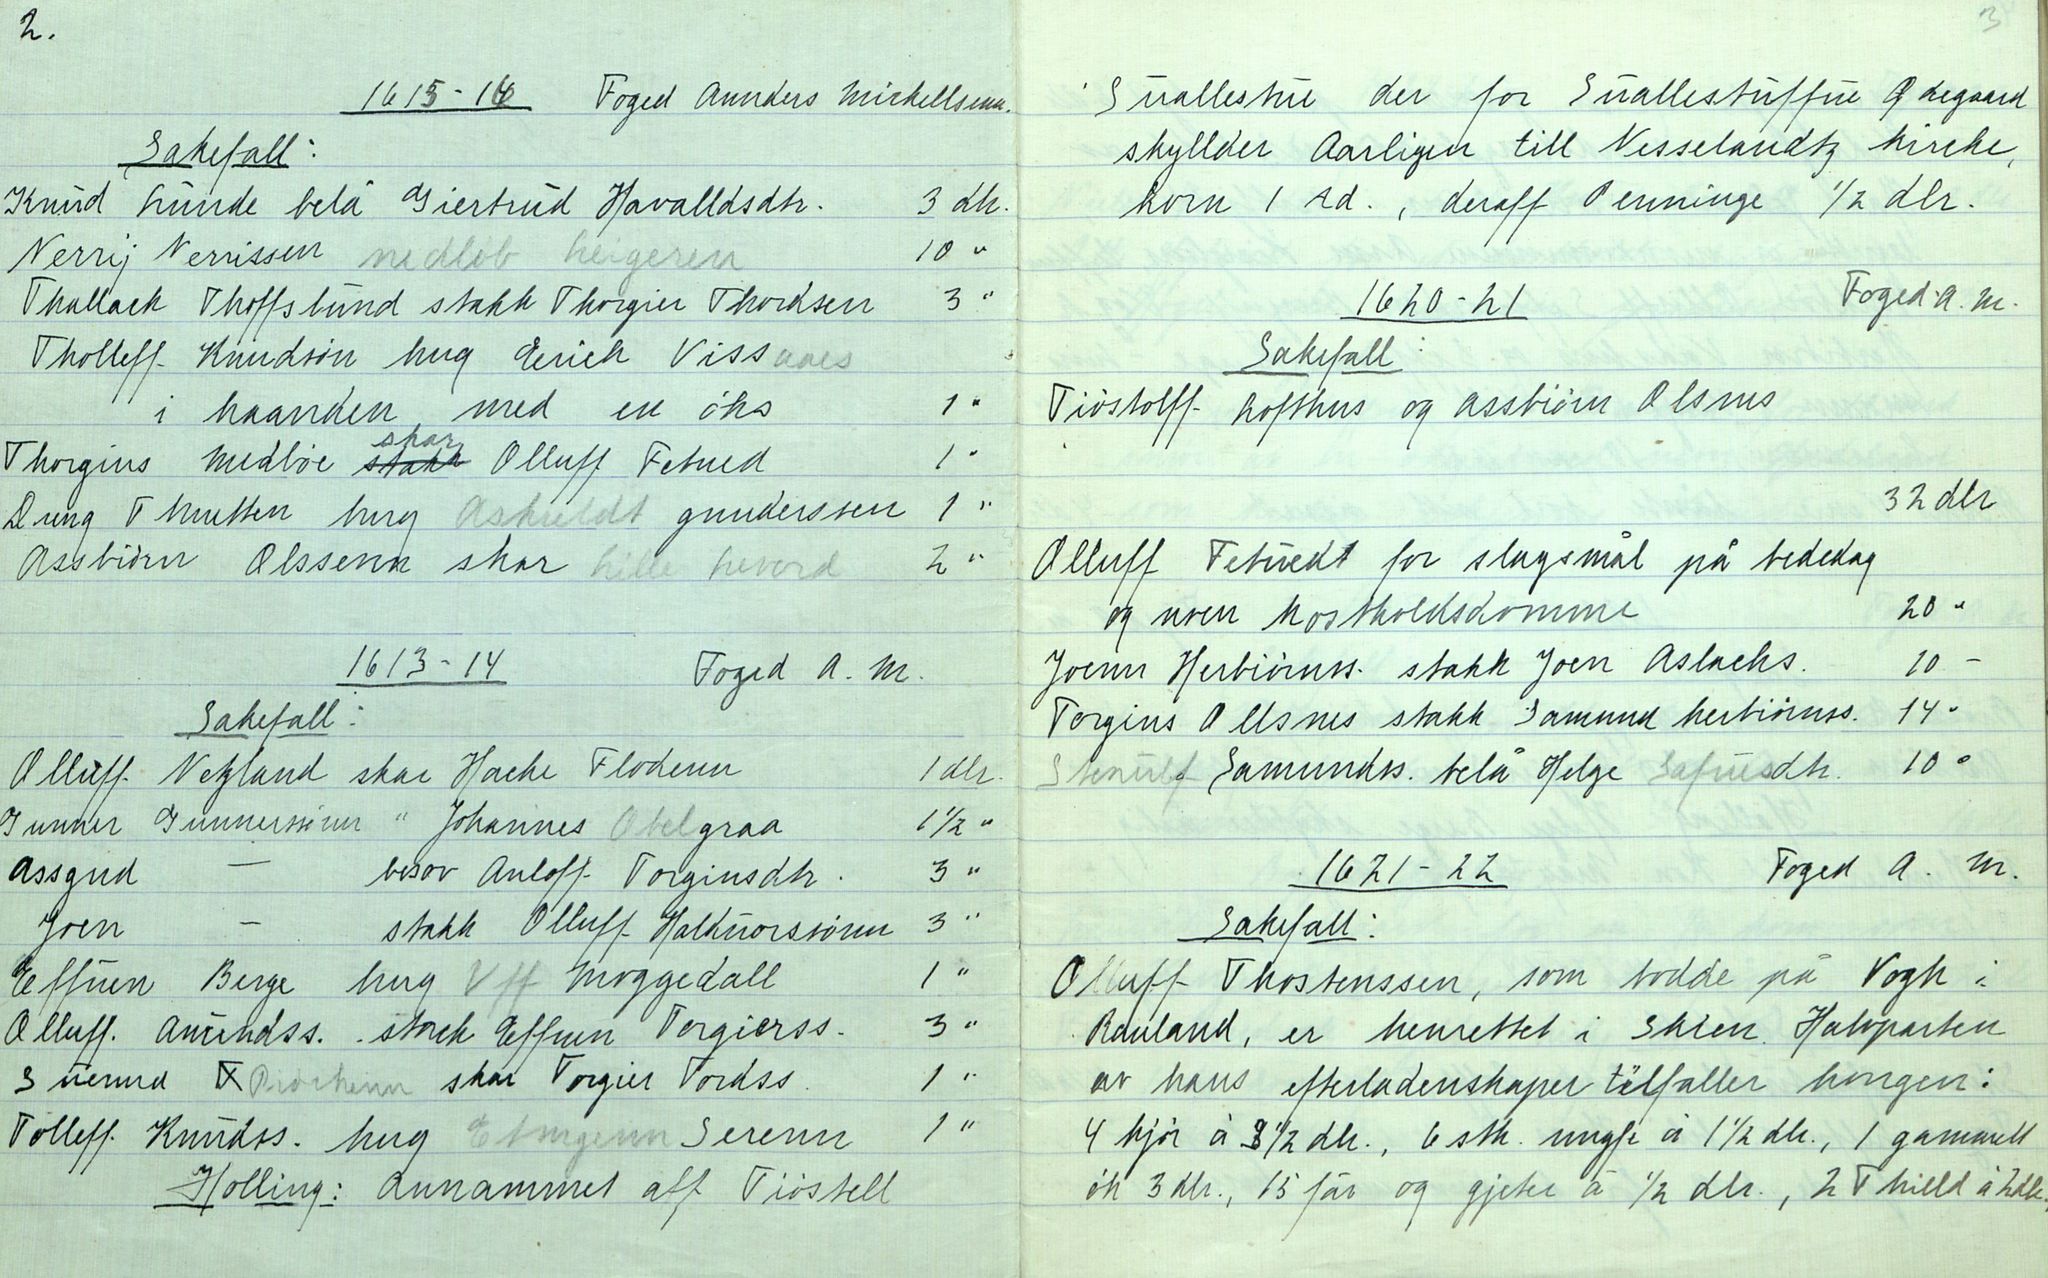 2.
1615-16 Foged Annders Mickellsenn.
Sakefall:
Knud Lunde belå Giertrud Havalldsdtr. 3 dlr.
Nerrij Nerrissen nedlob heigeren 10 "
Thallack Thoffslund stakk Thorgier Thordsen 3 "
Tholleff Knudsön hug Eerick Vissaaes
i haanden med en öks 1 "
Thorgius Medböe skar Olluff Fetued 1 "
Dung Thmetten hug Askuldt gunderssen 1 "
Assbiörn Olssenn skar hille hevord 2 "
1613-14 Foged A. M.
Sakefall:
Olluff Netzland skar Hacke Flodenn 1 dlr.
Gunner Gunnerssönn " Johannes Obelgraa 1 1/2 "
Assgud — besov Anloff Torginsdtr. 3 "
Joen — stakk Olluff Halkuorssönn 3 "
Effuen Berge hug Uff Moggedall 1 "
Olluff Amundss. stack Effuen Torgierss. 3 "
Suenud skar Torgier Tordss. 1 "
Tolleff Knudss. hug Serenn 1 "
Holling: Annammet aff Tiöstell
3
Suallestue der for Suallestuffue Ødegaard
skyllder Aarligen till Nesselandtz kircke,
korn 1 td., deraff Penninge 1/2 dlr.
1620-21 Foged A. M.
Sakefall:
Tiöstolff Lofthus og Assbiörn Olsnes
32 dlr
Olluff Fetuedt for slagsmål på bededag
og uven kostholdsdomme 20 "
Joenn Herbiörnss. stakk Joen Aslacks. 10 -
Torgius Ollsnes stakk Samund herbiörnss. 14 "
Stenulf Samundss. belå Helge Safuesdtr. 10 "
1621-22 Foged A. M.
Sakefall:
Olluff Thostenssen, som bodde på Vogh i
Rauland, er henrettet i Skien. Halvparten
av hans efterladenskaper tilfaller kongen:
4 kjör à 3 1/2 dlr., 6 stk. ungfe à 1 1/2 dlr., 1 gammell
ök 3 dlr., 15 får og gjeter à 1/2 dlr., 2 Thilld à 2 dlr.,